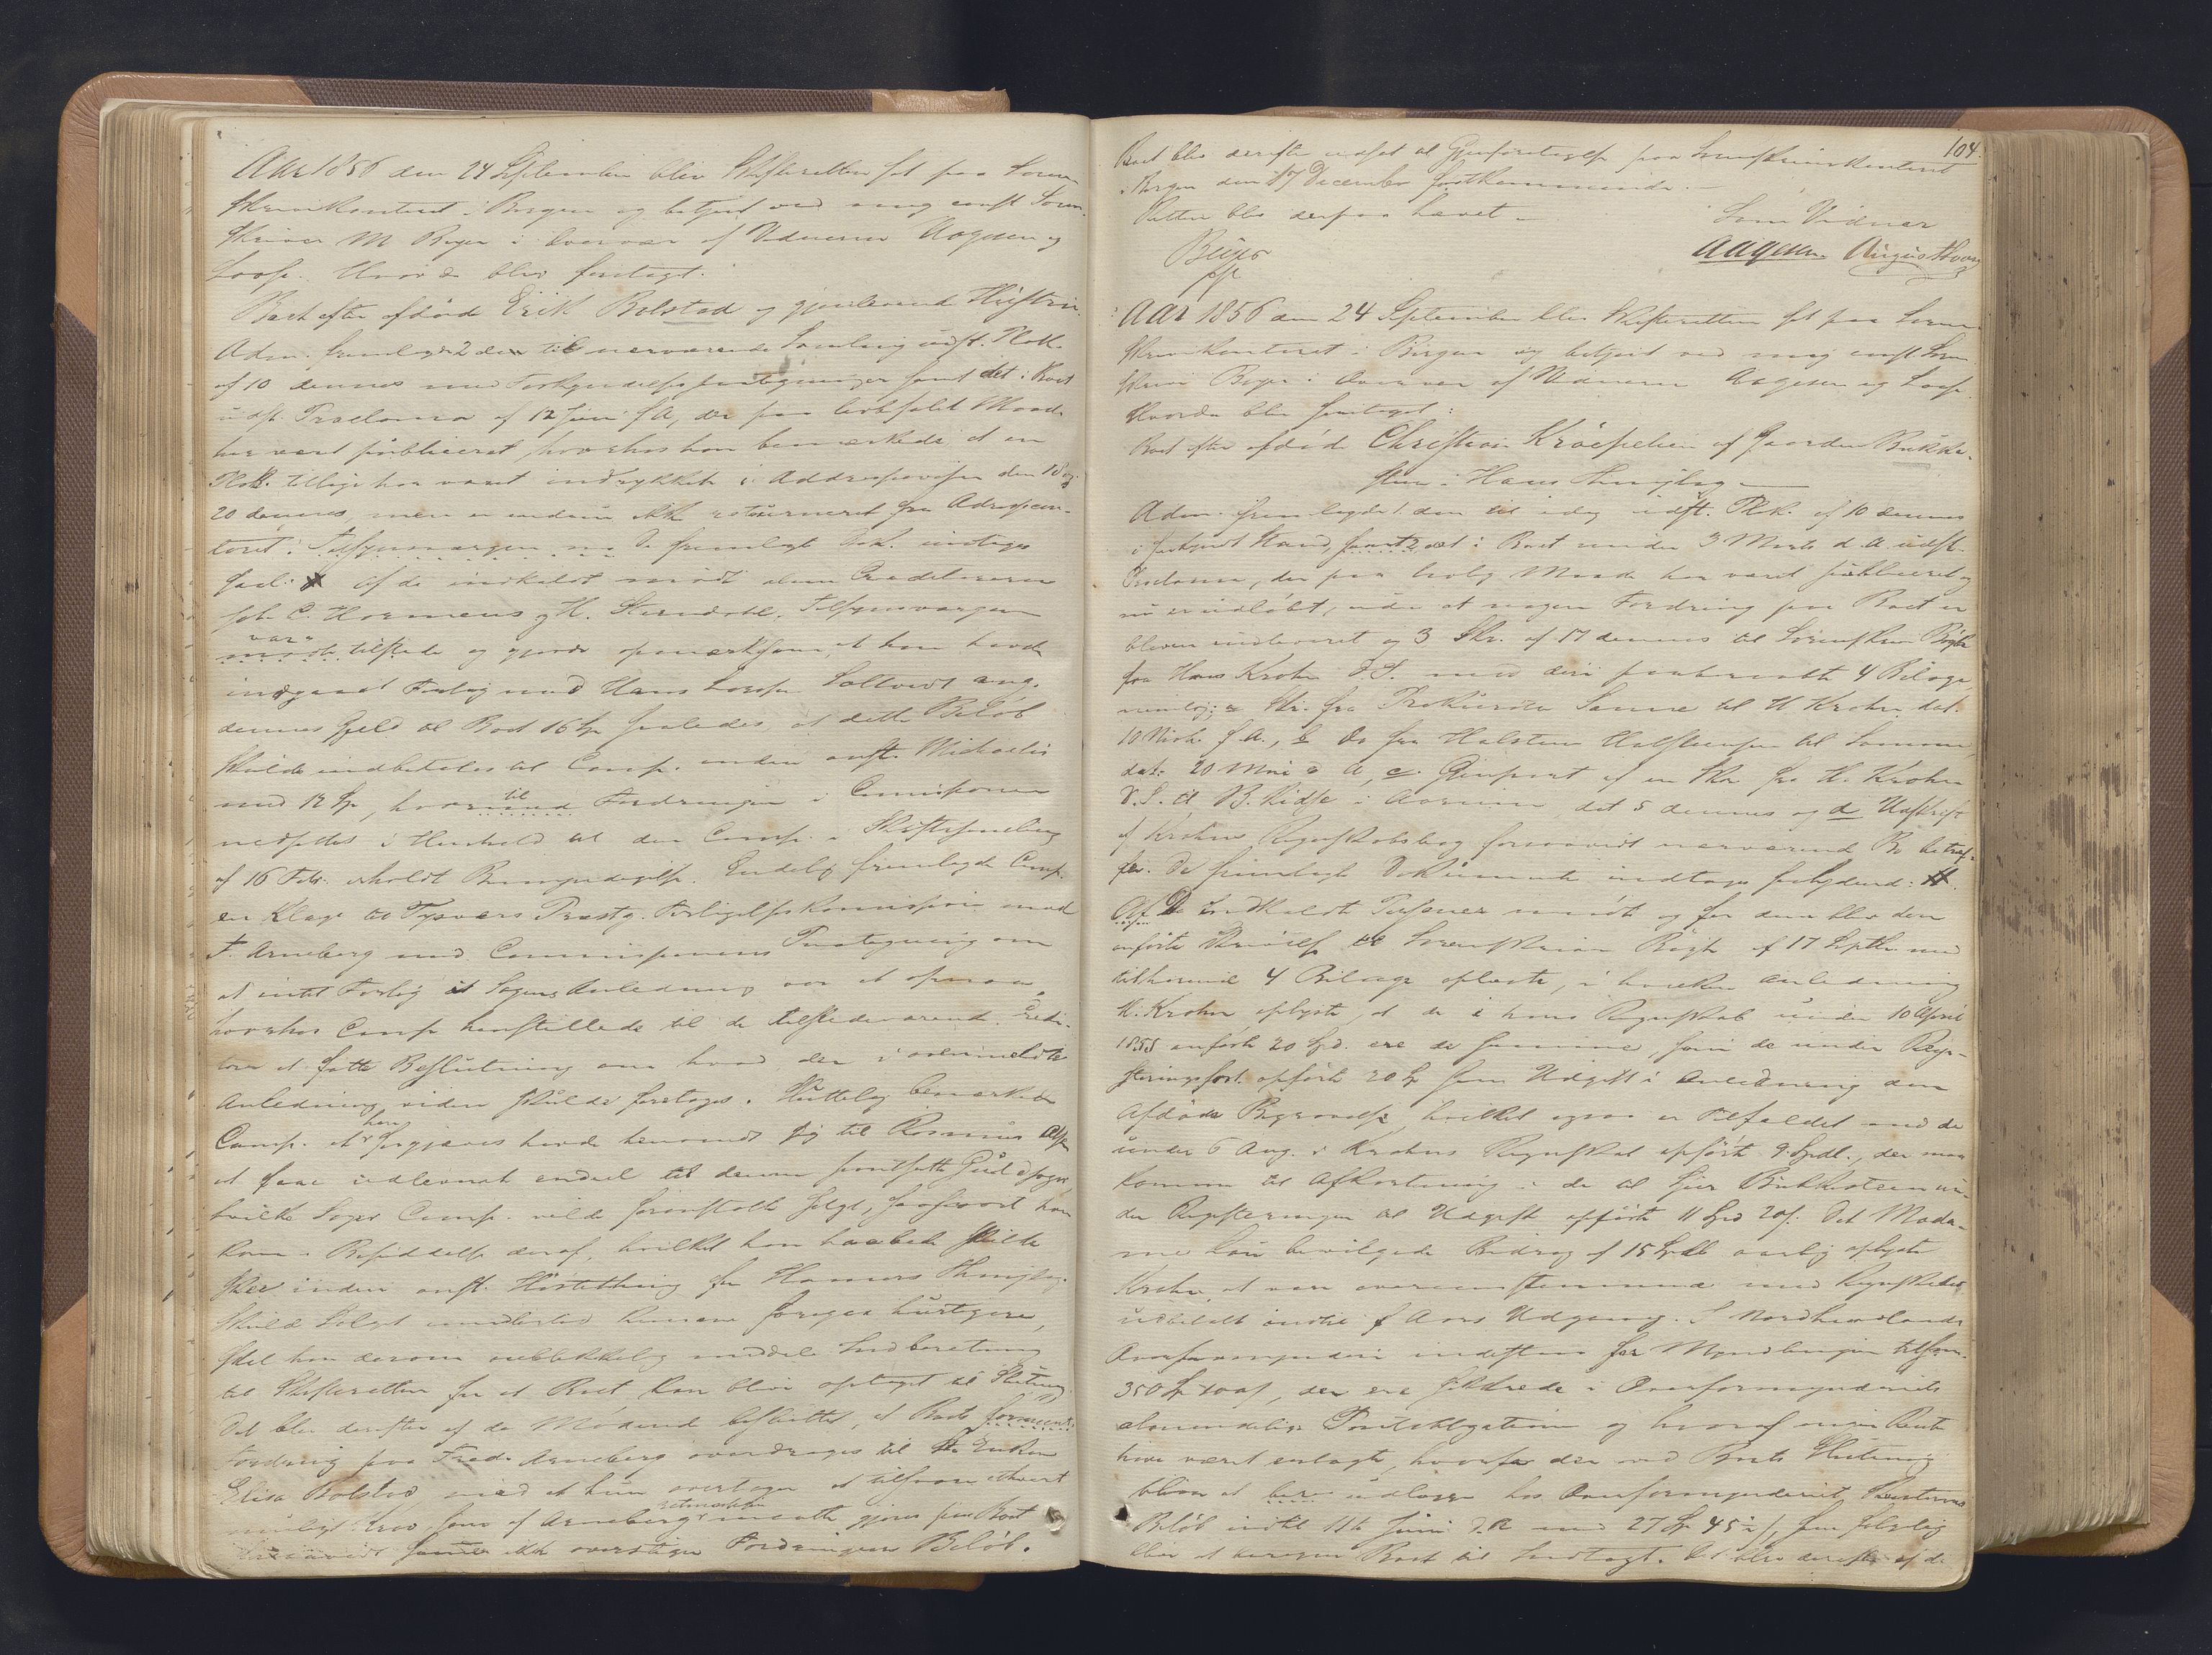 Aar 1856 den 24 September blev Skifteretten sat paa Soren-
skriverkontoret i Bergen og betjent ved mig const. Soren-
skriver M Beyer i Overvær af Vidnerne Aagesen og
Loose. Hvorda blev foretaget:
Boet efter afdøde Erik Bolstad og gjenlevende Hustru.
Adm. fremlagde 2 den til nærværende Samling udst. Plak.
af 10 dennes med Forkyndelsespaategninger samt det i Boet
udst. Proclama af 12 Juni f A, der paa lovbefalet Maade
har været publiceret, hvorhos han bemærkede at en
Plak. tillige har været indrykket i Addresseavisen den 18 og
20 dennes, men er endnu ikke retourneret fra Adressecon-
toret. De fremlagte Dok. indtages
saal: Af de indkaldte mødte alene Creditorerne
Joh. C. Hormens og H. Tilsynsværgen
var tilstede og gjorde opmærksom, at han havde
indgaaet Forlig med Hans Larsen ang.
dennes Gjeld til Boet 16 Sp saaledes at dette Beløb
skulde indbetales til Comp. inden anst. Michaeli
med 12 Sp, hvortil Fordringen i Commissionen
nedsattes i Henhold til den Comp. i Skiftesamling
af 16 Febr. meddelt Bemyndigelse. Endelig fremlagde Comp.
en Klage til Tysværs Præstg. Forligelseskommission mod
F. Arneberg med Commissionens Paategning om
at intet Forlig i Sagens Anledning var at opnaa,
hvorhos Comp henstillede til de tilstedeværende Credi-
torer at fatte Beslutning om hvad der i ovenmeldte
Anledning videre skulde foretages. Sluttelig bemærkede
Comp. at han forgjæves havde henvendt sig til Rasmus
at faae udleveret endeel til denne pantsatte Guldsager,
hvilke Sager Comp. vilde foranstalte solgt, saasnart han
kom i Besiddelse deraf, hvilket han haabede skulde
skee inden anst. Høstething for Hammers Thinglag.
Skulde Salget imidlertid kunne foregaa hurtigere,
skal han derom uopholdelig meddele Indberetning
til Skifteretten for at Boet kan blive optaget til Slutning.
Det blev derefter af de Mødende besluttet, at Boets formeente
Fordring paa Fred. Arneberg overdrages til Enken
Elisa Bolstad, mod at hun overtager at tilsvare ethvert
muligt Krav som af Arneberg retmæssig maatte gjøres paa Boet
forsaavidt samme ikke overstiger Fordringens Beløb.
104.
Boet blev derefter udsat til Gjenforetagelse paa Sorenskriverkontoret
i Bergen den 17 December førstkommende.
Retten blev derpaa hævet.
Som Vidner
Beyer
Aagesen August Loose
cst
Aar 1856 den 24 September blev Skifteretten sat paa Soren-
skriverkontoret i Bergen og betjent ved mig const. Soren-
skriver Beyer i Overvær af Vidnerne Aagesen og Loose.
Hvorda blev foretaget:
Boet efter afdøde Christian Krøepelien af Gaarden Bukke-
steen i Haus Thinglag
Adm. fremlagde 1 den til idag udst. Plak. af 10 dennes
i forkyndt Stand, samt 2 det i Boet under 3 Marts d. A udst.
Proclama, der paa lovlig Maade har været publiceret og
nu er udløbet, uden at nogen Fordring paa Boet er
bleven indleveret og 3 Skr. af 17 dennes til Sorenskriver
fra Hans Krohn D.S. med deri paaberaabte 4 Bilage,
nemlig: a Skr. fra Prokurator Sanne til H Krohn dat.
10 f. A., b Do fra Halsteen Halsteensen til Samme,
dat. 20 Mai d A, c. Gjenpart af en Skr fra H. Krohn
D.S. til B. i dat 5 dennes og d Udskrift
af Krohns Regnskabsbog forsaavidt nærværende Bo betræf-
fer. De fremlagte Dokumenter indtages saalydende:
Af De Indkaldte mødte og for dem blev den
anførte Skrivelse til Sorenskriver af 17 Septbr. med
tilhørende 4 Bilage oplæste, i hvilken Anledning
H. Krohn oplyste, at de i hans Regnskab under 10 April
1855 anførte 20 Spd. ere de samme, som de under Regi-
streringsforr. opførte 20 Sp som Udgift i Anledning den
Afdødes Begravelse, hvilket ogsaa er Tilfældet med de
under 6 Aug. i Krohns Regnskab opførte 9 Spdl., der maa
komme til Afkortning i de til Gjør Bukkesteen un-
der Registeringen til Udgift opførte 11 Spd 20 s. Det Mada-
me Lau bevilgede Bidrag af 15 Spdl aarlig oplyste
Krohn at være overeensstemmende med Regnskabet
udbetalt indtil f Aars Udgang. I Nordhordlands
Overformynderi indestaar for Myndlingen tilsam.
350 Sp, der ere sikkrede i Overformynderiets
almindelige Pantobligationer og hvoraf ingen Rente
have været erlagte, hvorfor der ved Boets Slutning
bliver at udlægge hos Overformynderiet Renternes
Beløb indtil 11te Juni d. A med 27 Sp 45 s, som følgelig
bliver at beregne Boet til Indtægt. Det blev derefter af de